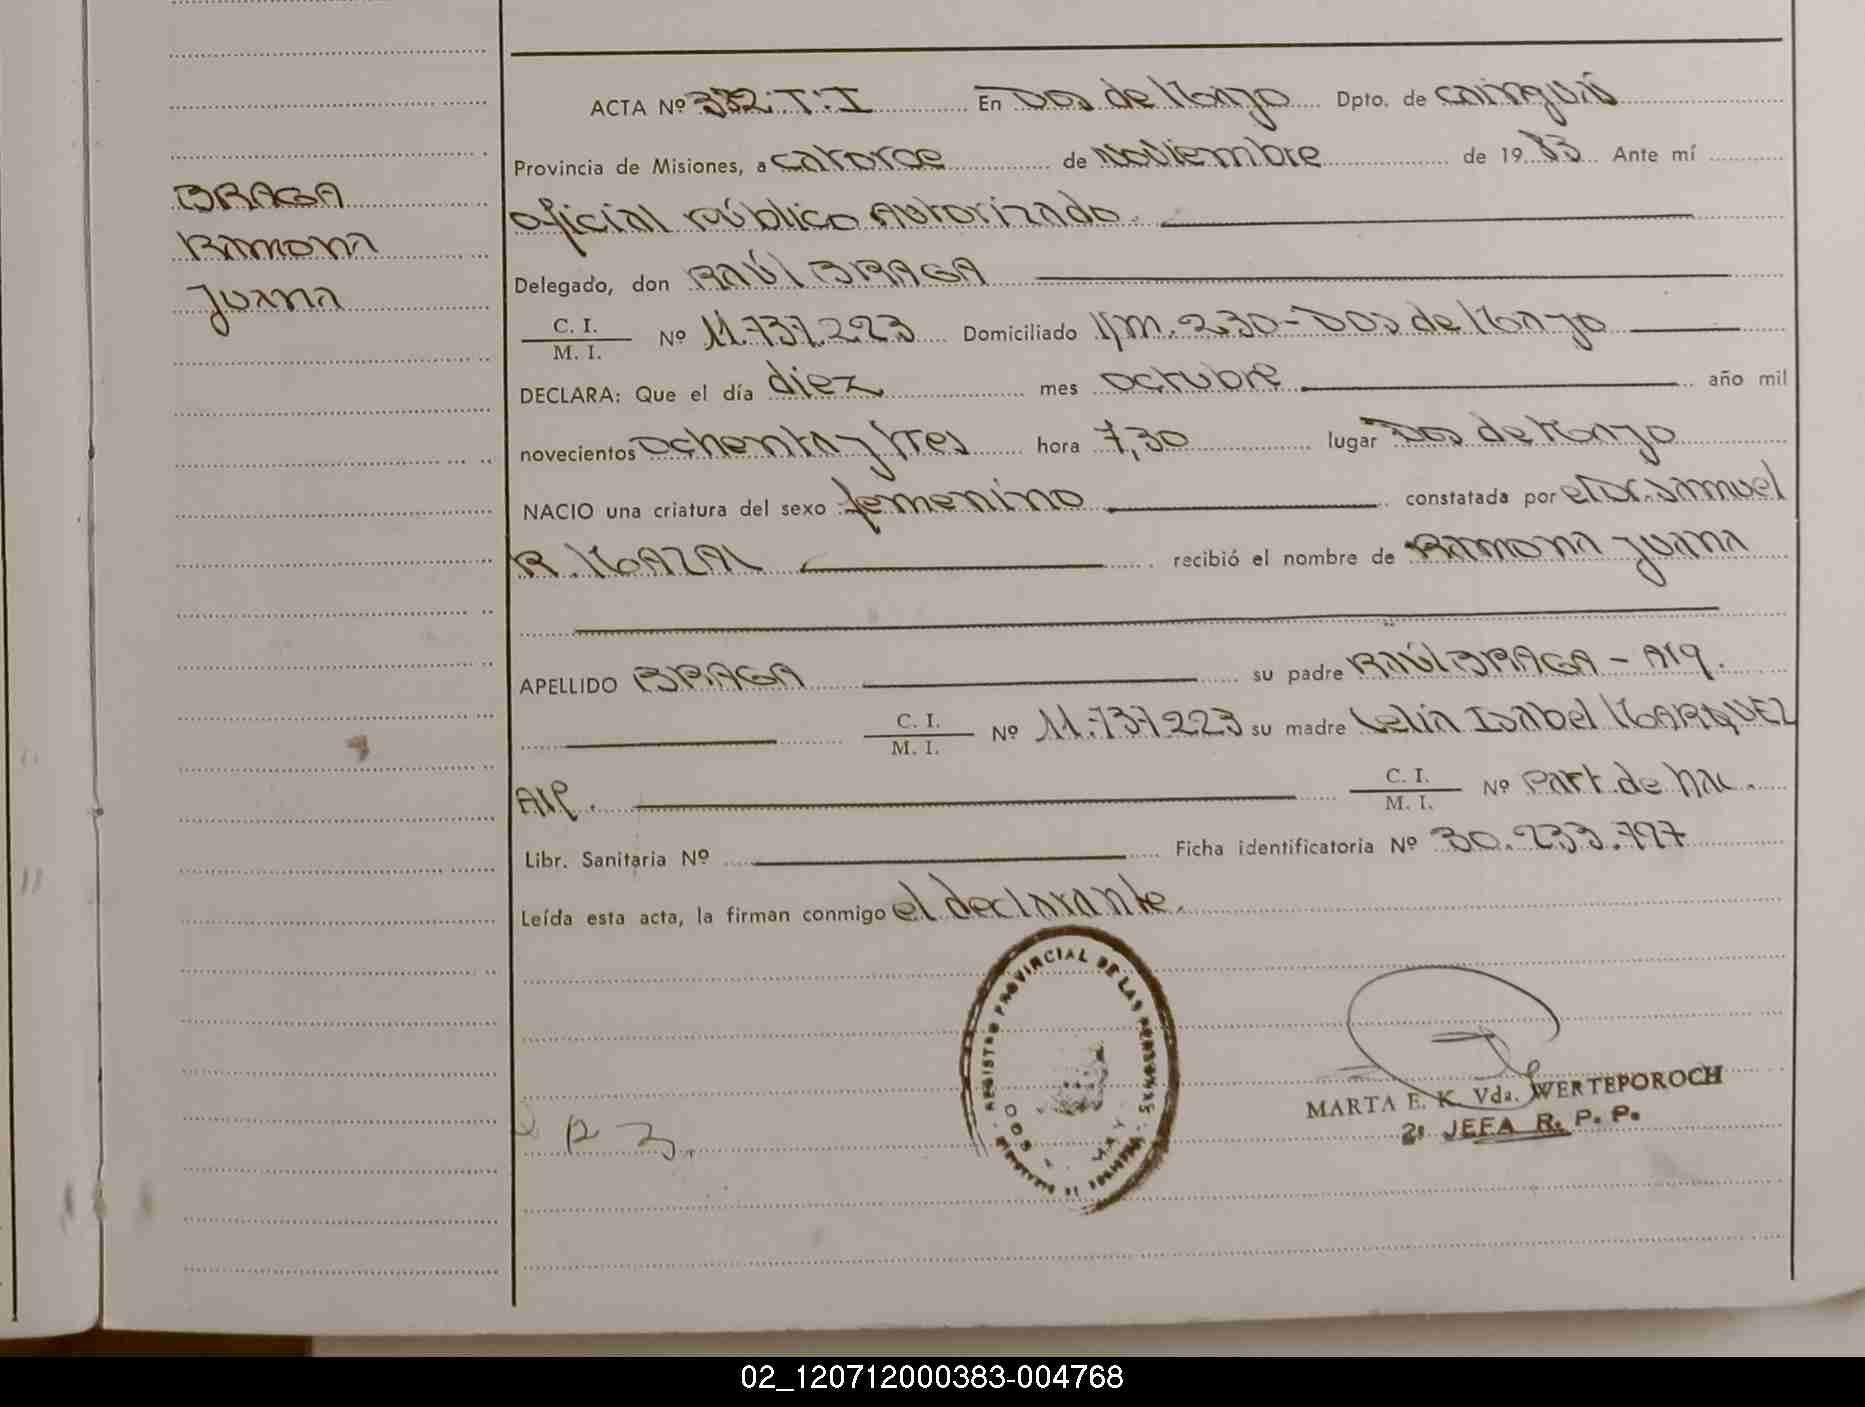 BRAGA
RAMONA
Juana
ACTA Nº 332.T:I En Dos de Mayo Dpto. de Cainguás
Provincia de Misiones, a catorce de Noviembre de 1983 Ante mí
oficial Público Autorizado.
Delegado, don RAÚL BRAGA
C. I.
M. I. Nº 11.737.223 Domiciliado Km. 230-Dos de Mayo
DECLARA: Que el día diez mes octubre año mil
novecientos ochenta y tres hora 7,30 lugar Dos de Mayo
NACIO una criatura del sexo femenino constatada por el Dr. Samuel
R. MAZAL recibió el nombre de RAMONA JUANA
APELLIDO BRAGA su padre RAÚL BRAGA - Arg.
C. I.
M. I. Nº 11.737.223 su madre Lelia Isabel MARQUEZ
Arg. C. I.
M. I. Nº Part. de Nac.
Libr. Sanitaria Nº Ficha identificatoria Nº 30.233.797
Leída esta acta, la firman conmigo el declarante.
REGISTRO PROVINCIAL DE LAS PERSONAS
MARTA E. K. Vda. WERTEPOROCH
JEFA R. P. P.
02_120712000383-004768